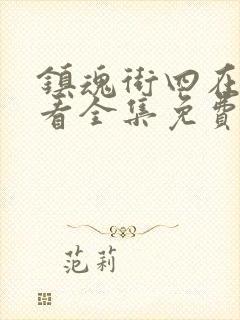 鎮魂街四在
看全集免費
范莉